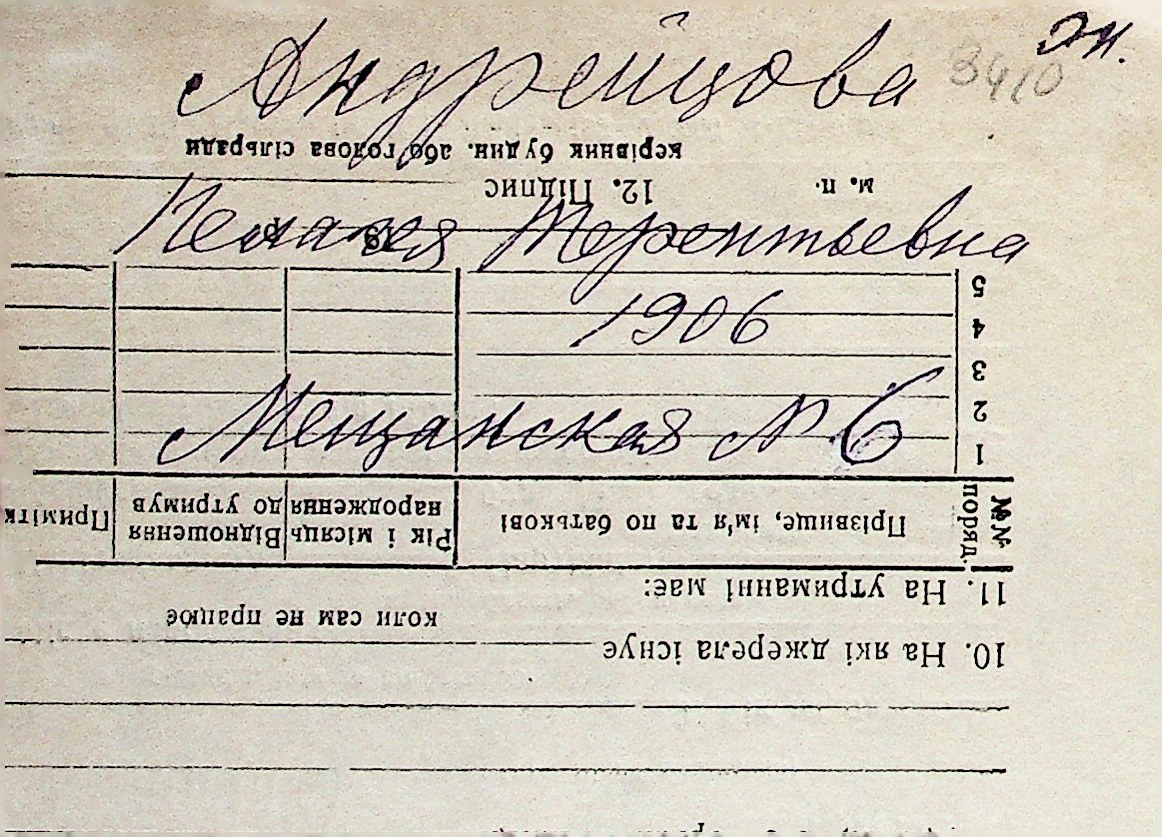 эк.
3410
Андрейцова
Пелагея Терентьевна
1906
Мещанская № 6
10. На які джерела існує
коли сам не працює
11. На утриманні має:
№№ поряд.
Прізвище, ім'я та по батькові
Рік і місяць народження
Відношення до утримув
Примітк
1
2
3
4
5
19 р.
м. п.
12. Підпис
керівник будин. або голова сільради